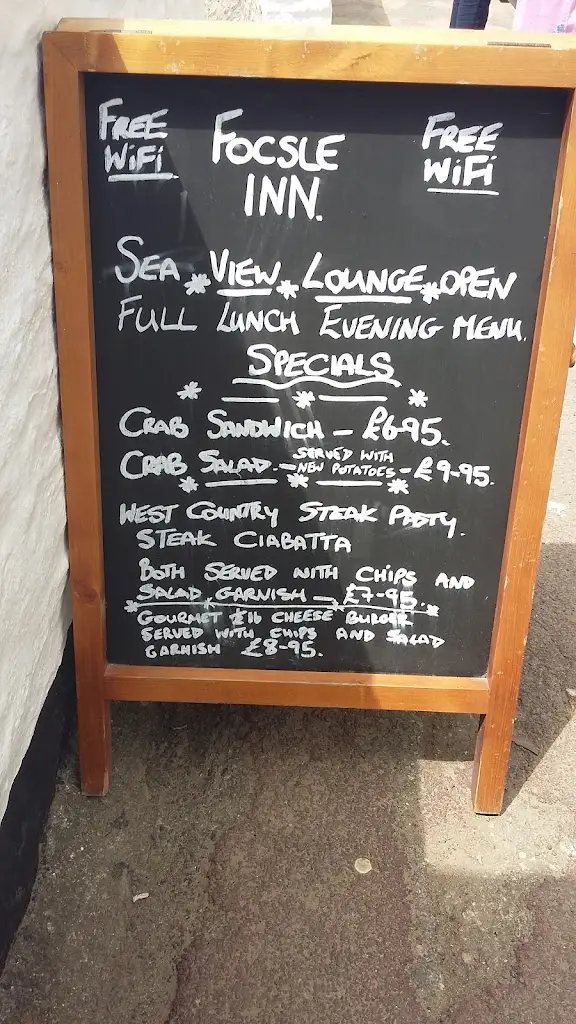 FREE WIFI
FOCSLE INN.
FREE WIFI
SEA * VIEW * LOUNGE * OPEN
FULL LUNCH EVENING MENU.
SPECIALS
CRAB SANDWICH - £6-95.
CRAB SALAD. - SERVED WITH NEW POTATOES - £9-95.
WEST COUNTRY STEAK PASTY.
STEAK CIABATTA
BOTH SERVED WITH CHIPS AND
SALAD GARNISH - £7-95.
GOURMET ½ lb CHEESE BURGER
SERVED WITH CHIPS AND SALAD
GARNISH £8-95.